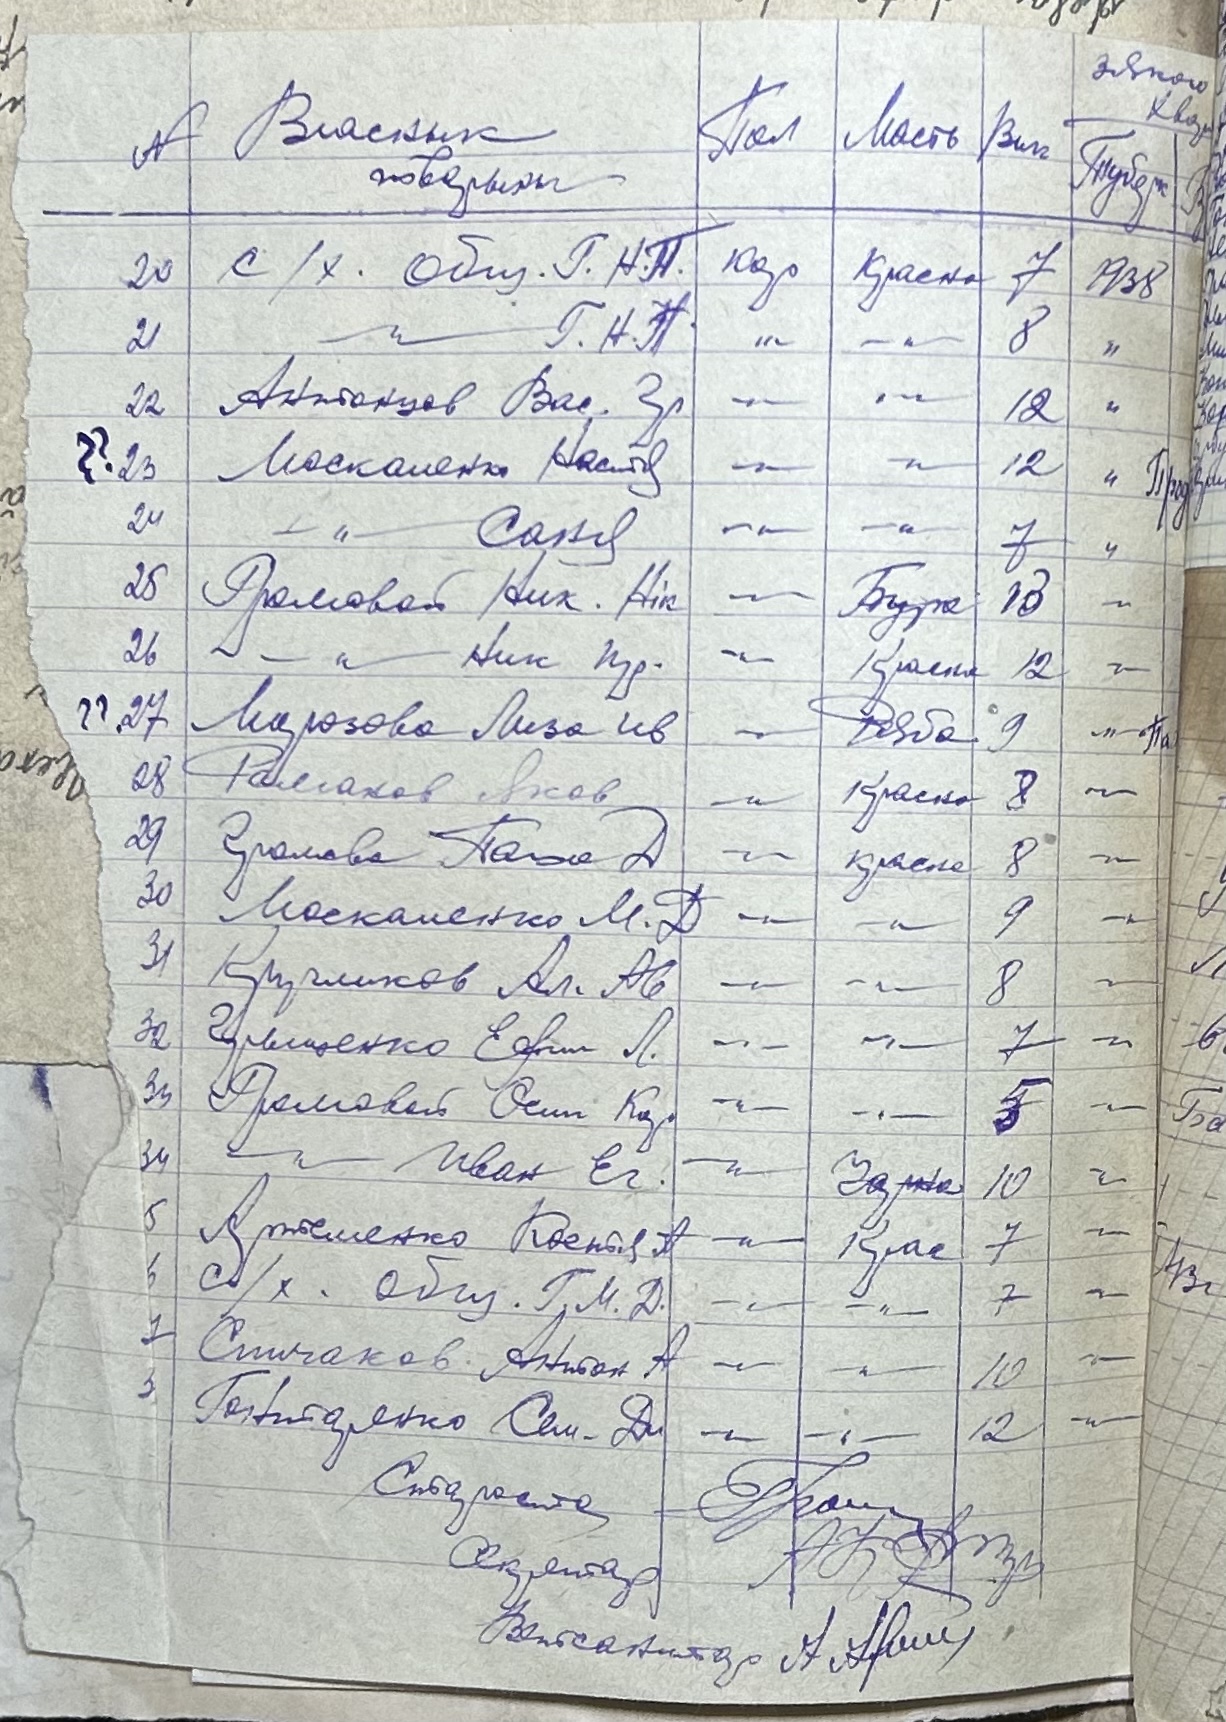 N Власнык Пол Масть Вик
товарыны Тубер
20 с/х. Общ. Г. Н.П. кор красна 7 1938
21 —〃— Г. Н.П. 〃 —〃— 8 〃
22 Антонцов Вас. Гр —〃— —〃— 12 〃
??.23 Москаленко Настя —〃— —〃— 12 〃
24 —〃— Саня —〃— —〃— 7 〃
25 Громовой Ник. Нік —〃— Бура 13 〃
26 —〃— Ник Гр. —〃— Красна 12 〃
??.27 Морозова Лиза Ив —〃— Ряба 9 〃
28 Романов Яков —〃— Красна 8 〃
29 Громова Паша Д —〃— красна 8 〃
30 Москаленко М. Д —〃— —〃— 9 —〃—
31 Кручликов Ал. Ав —〃— —〃— 8 —〃—
32 Грыщенко Ефим Л. —〃— —〃— 7 —〃—
33 Громовой Осип Кар —〃— —〃— 5 —〃—
34 —〃— Иван Ег. —〃— Чорна 10 —〃—
5 Артеменко Костя А —〃— Крас 7 —〃—
6 с/х. Общ. Г. М. Д. —〃— —〃— 7 —〃—
7 Спичаков Антон А —〃— —〃— 10 —〃—
Гонтаренко Сем. Дм —〃— —〃— 12 —〃—
Староста
Секретар
Ветсанитар